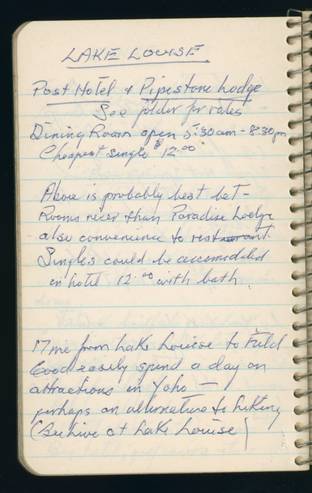 LAKE LOUISE
Post Hotel & Pipestone Lodge
See folder for rates
Dining Room open 5:30am - 8:30pm
Cheapest single $12.00
Above is probably best bet -
Rooms nicer than Paradise Lodge
also convenience to restaurant.
Singles could be accomodated
in hotel 12.00 with bath.
17 mi from Lake Louise to Field
Could easily spend a day on
attractions in Yoho —
perhaps an alternative to hiking
(Beehive at Lake Louise)